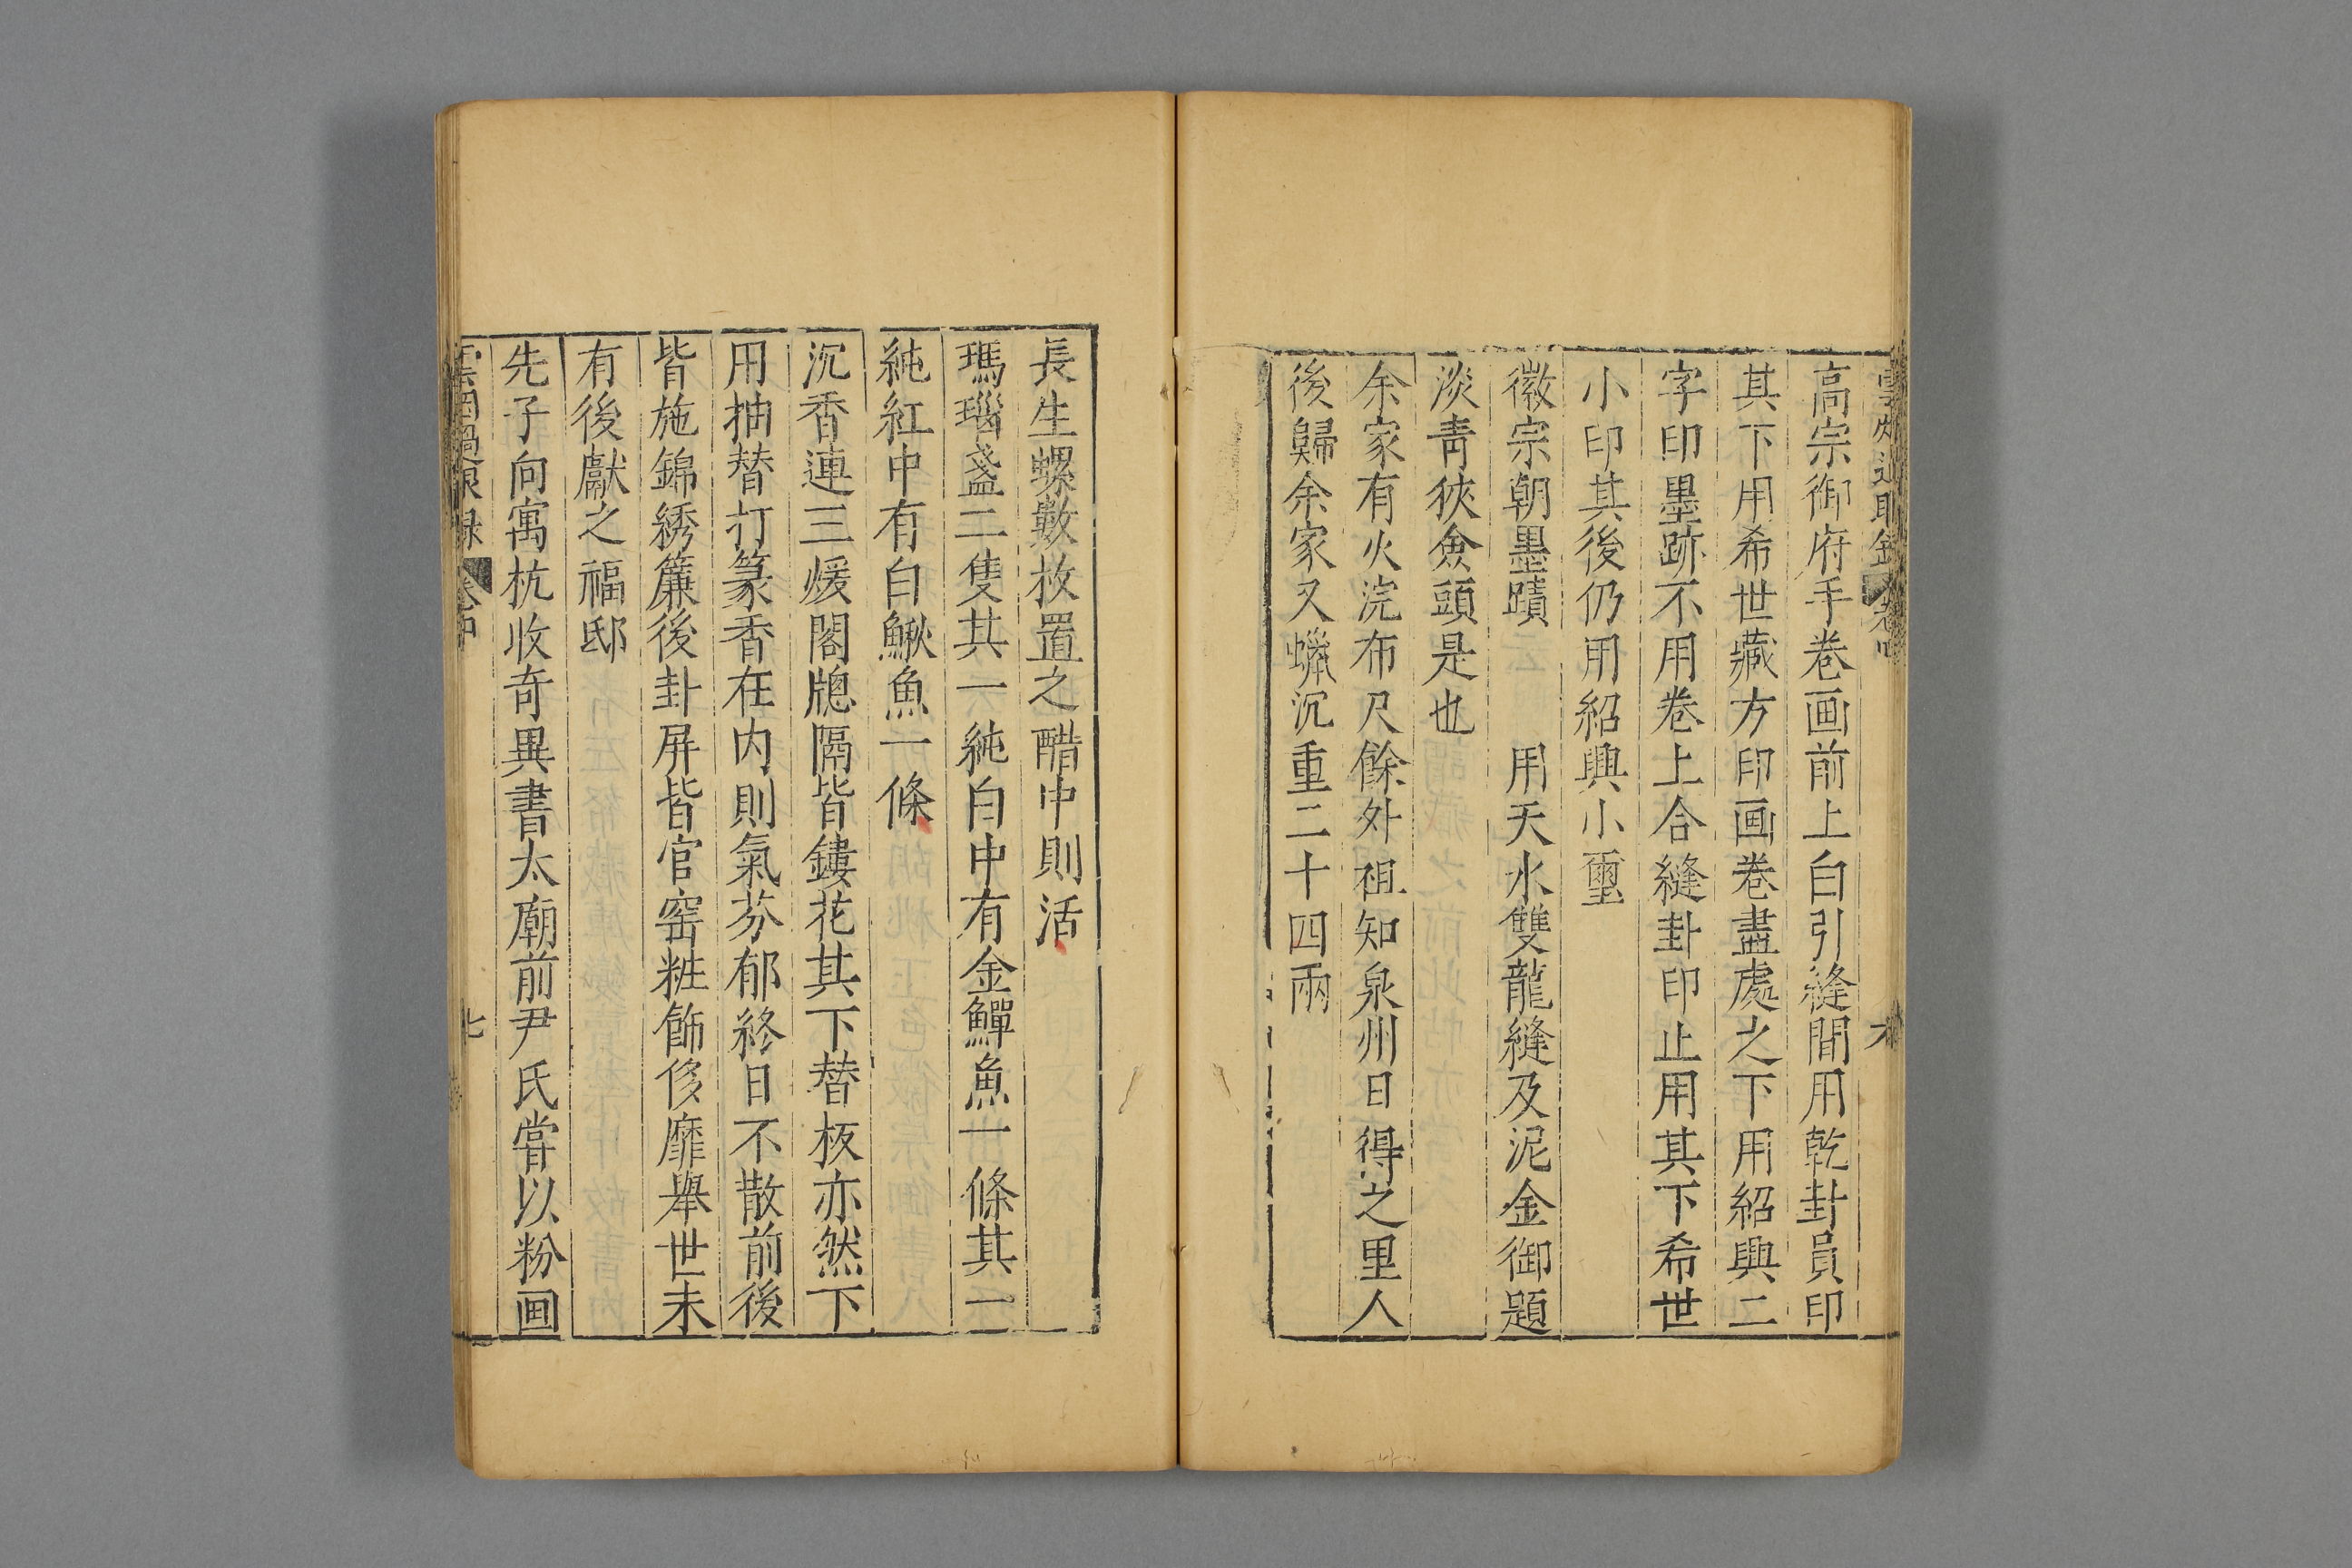 高宗御府手卷画前上白引縫間用乾封員印
其下用希世藏方印画卷盡處之下用紹興二
字印墨跡不用卷上合縫卦印止用其下希世
小印其後仍用紹興小璽
徽宗朝墨蹟　　用天水雙龍縫及泥金御題
淡青狹僉頭是也
余家有火浣布尺餘外祖知泉州日得之里人
後歸余家又蠟沉重二十四兩
長生螺數枚置之醋中則活
瑪瑙盞二隻其一純白中有金鱓魚一條其一
純紅中有白鰍魚一條
沉香連三煖閣牎隔皆鏤花其下替板亦然下
用抽替打篆香在内則氣芬郁終日不散前後
皆施錦綉簾後卦屏皆官窑粧飾侈靡舉世未
有後獻之福邸
先子向寓杭收奇異書太廟前尹氏嘗以粉画
雲烟過眼録 卷中 七